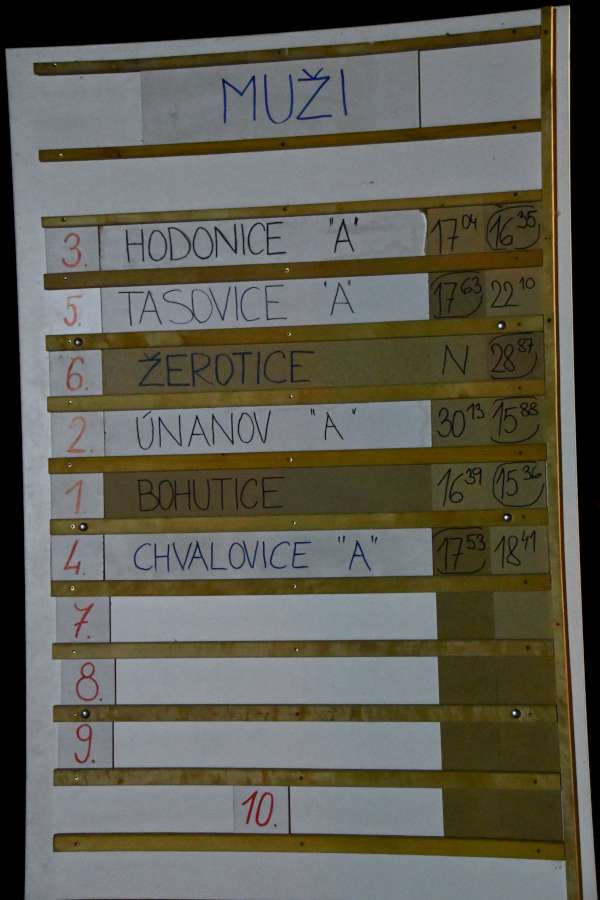 MUŽI
3. HODONICE "A" 17 04 16 35
5. TASOVICE "A" 17 63 22 10
6. ŽEROTICE N 28 87
2. ÚNANOV "A" 30 13 15 88
1. BOHUTICE 16 39 15 36
4. CHVALOVICE "A" 17 53 18 41
7.
8.
9.
10.